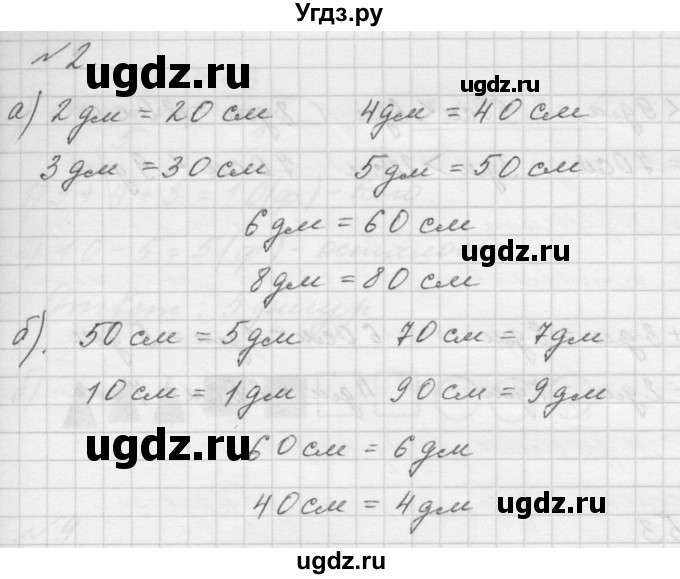 Угдз.ру
№2
ugdz.ru
ugdz.ru
а) 2 дм = 20 см 4 дм = 40 см
3 дм = 30 см 5 дм = 50 см
6 дм = 60 см
ugdz.ru
8 дм = 80 см
б). 50 см = 5 дм 70 см = 7 дм
10 см = 1 дм 90 см = 9 дм
ugdz.ru
60 см = 6 дм
40 см = 4 дм
ugdz.ru
ugdz.ru